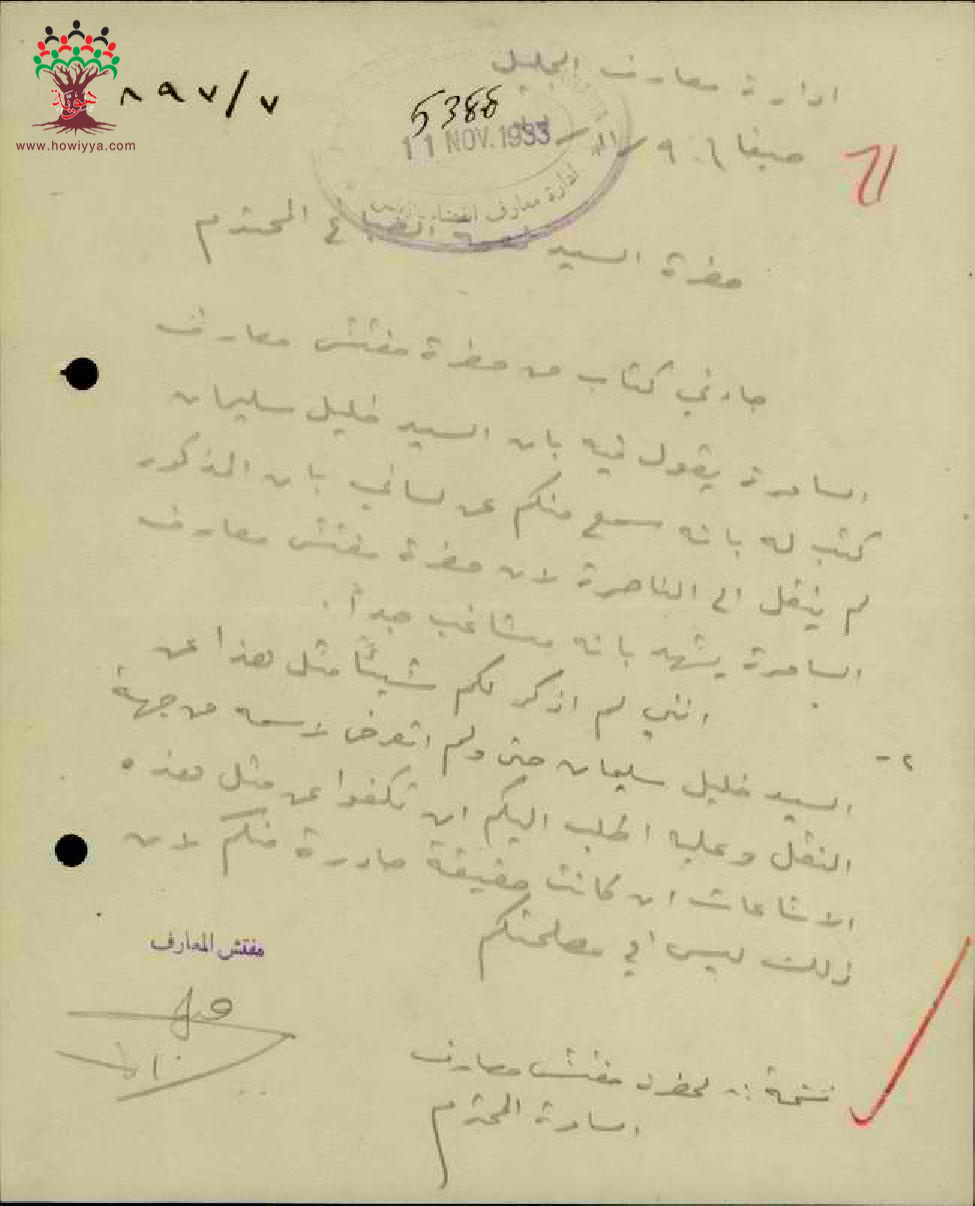 ادارة معارف الجليل
حيفا ٩٠٦
٨٩٧/٧
5388
11 NOV. 1933
ادارة معارف
حضرة السيد الصباغ المحترم
جاءني كتاب من حضرة مفتش معارف
السامرة يقول فيه بان السيد خليل سليمان
كتب له بانه سمع منكم عن لساني بان المذكور
لم ينقل الى الناصرة لان حضرة مفتش معارف
السامرة يشهد بانه مشاغب جداً.
٢- انني لم اذكر لكم شيئاً مثل هذا عن
السيد خليل سليمان حتى ولم اتعرض لاسمه من جهة
النقل وعليه اطلب اليكم ان تكفوا عن مثل هذه
الاشاعات ان كانت حقيقة صادرة منكم لان
ذلك ليس في مصلحتكم
مفتش المعارف
نسخة :- لحضرة مفتش معارف
السامرة المحترم
www.howiyya.com